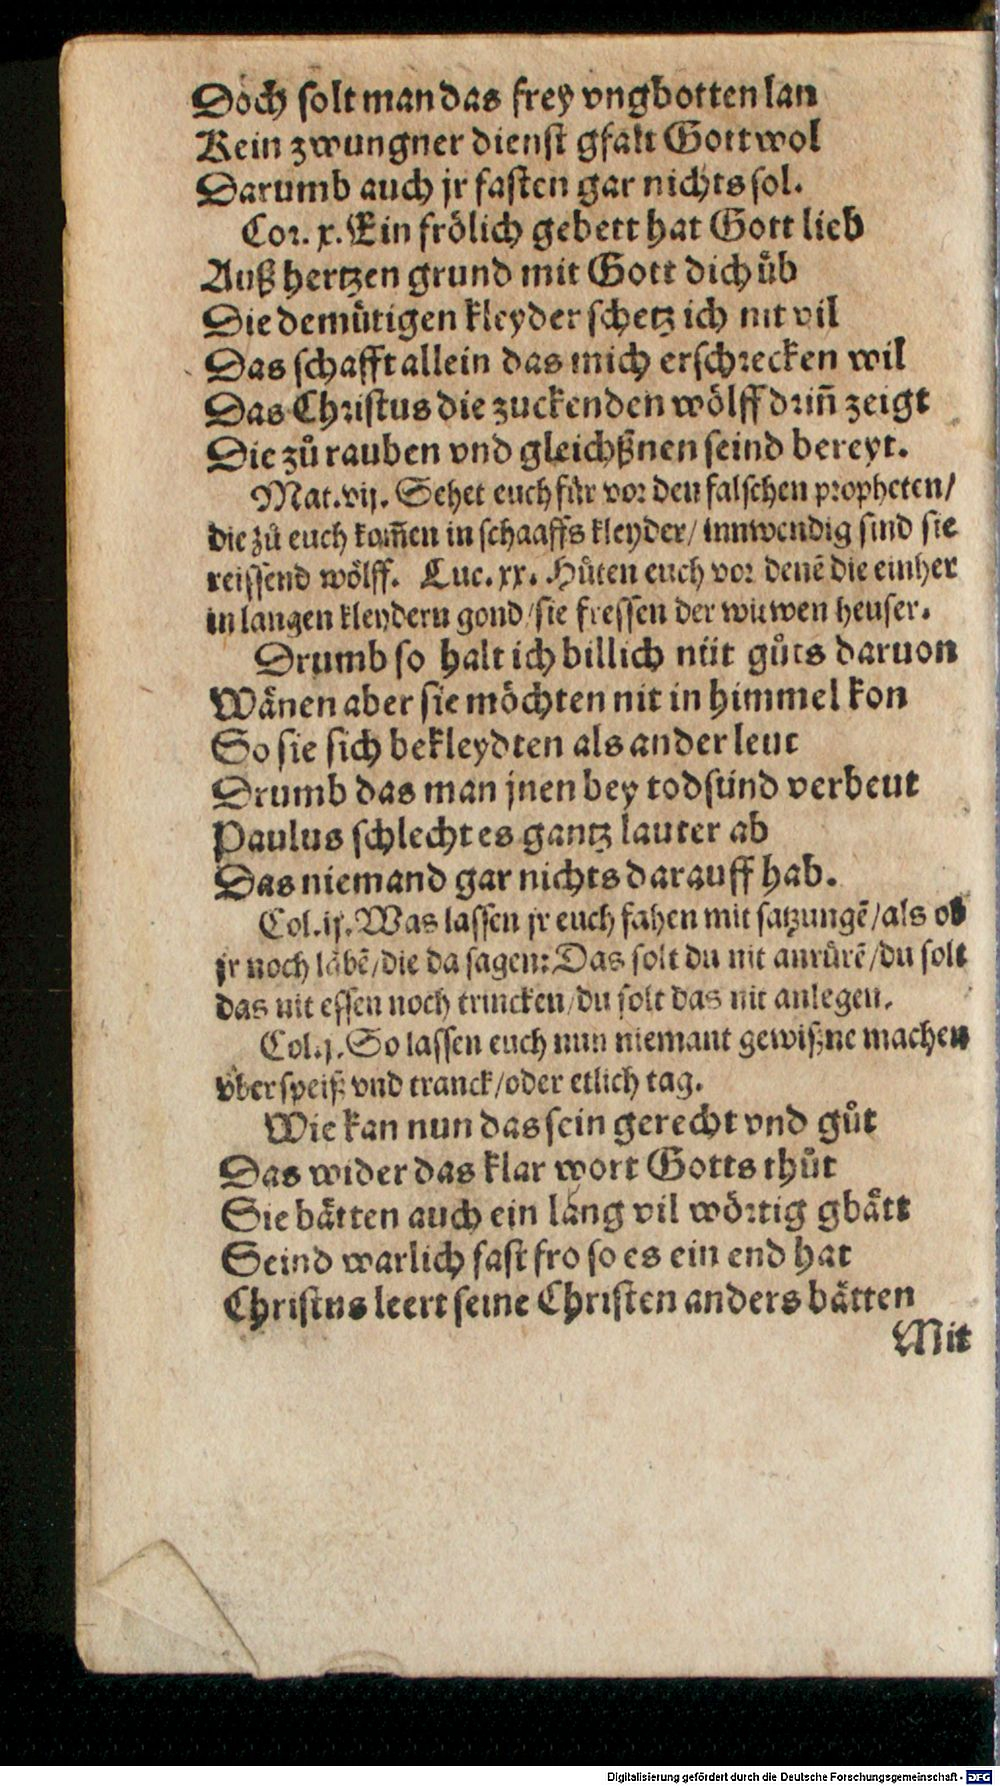 Doch solt man das frey vngbotten lan
Kein zwungner dienst gfalt Gott wol
Darumb auch jr fasten gar nichts sol.
Cor. x. Ein frölich gebett hat Gott lieb
Auß hertzen grund mit Gott dich üb
Die demütigen kleyder schetz ich nit vil
Das schafft allein das mich erschrecken wil
Das Christus die zuckenden wölff drin̄ zeigt
Die zů rauben vnd gleichßnen seind bereyt.
Mat. vij. Sehet euch für vor den falschen propheten/
die zů euch kom̄en in schaaffs kleyder/ innwendig sind sie
reissend wölff. Luc. xx. Hüten euch vor denē die einher
in langen kleydern gond/sie fressen der witwen heuser.
Drumb so halt ich billich nüt gůts daruon
Wänen aber sie möchten nit in himmel kon
So sie sich bekleydten als ander leut
Drumb das man jnen bey todsünd verbeut
Paulus schlecht es gantz lauter ab
Das niemand gar nichts darauff hab.
Col. ij. Was lassen jr euch fahen mit satzungē/als ob
jr noch läbē/die da sagen: Das solt du nit anrürē/du solt
das nit essen noch trincken/du solt das nit anlegen.
Col. j. So lassen euch nun niemant gewißne machen
vber speiß vnd tranck/oder etlich tag.
Wie kan nun das sein gerecht vnd gůt
Das wider das klar wort Gotts thůt
Sie bätten auch ein lang vil wörtig gbätt
Seind warlich fast fro so es ein end hat
Christus leert seine Christen anders bätten
Mit
Digitalisierung gefördert durch die Deutsche Forschungsgemeinschaft - DFG